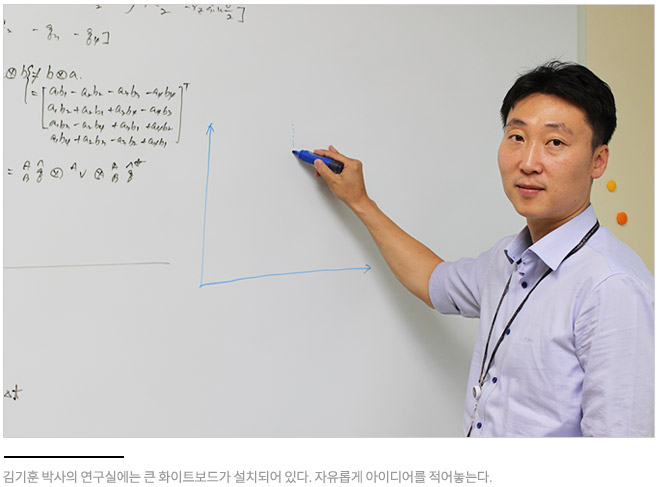 ⊗ b ≠ b ⊗ a.
= [a₁b₁ - a₂b₂ - a₃b₃ - a₄b₄
a₁b₂ + a₂b₁ + a₃b₄ - a₄b₃
a₁b₃ - a₂b₄ + a₃b₁ + a₄b₂
a₁b₄ + a₂b₃ - a₃b₂ + a₄b₁]ᵀ
Δt
김기훈 박사의 연구실에는 큰 화이트보드가 설치되어 있다. 자유롭게 아이디어를 적어놓는다.